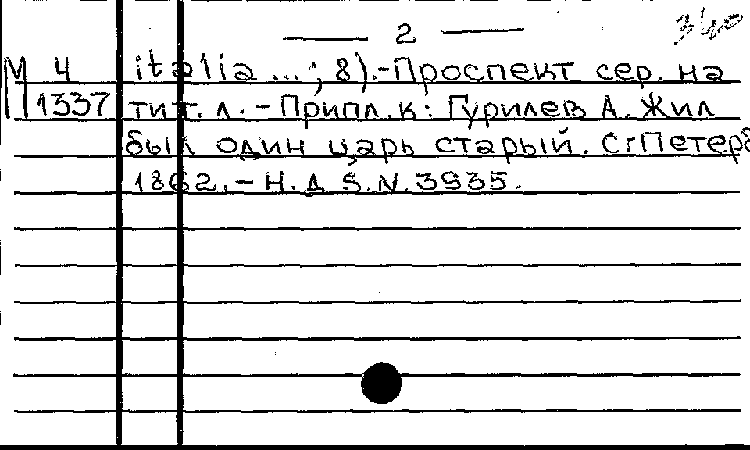 — 2 —
М 4 italia ...; 8).-Проспект сер. на
1337 тит. л. - Припл. к: Гурилев А. Жил
был один царь старый. С г Петерб
1862.- Н.Д S.N.3935.